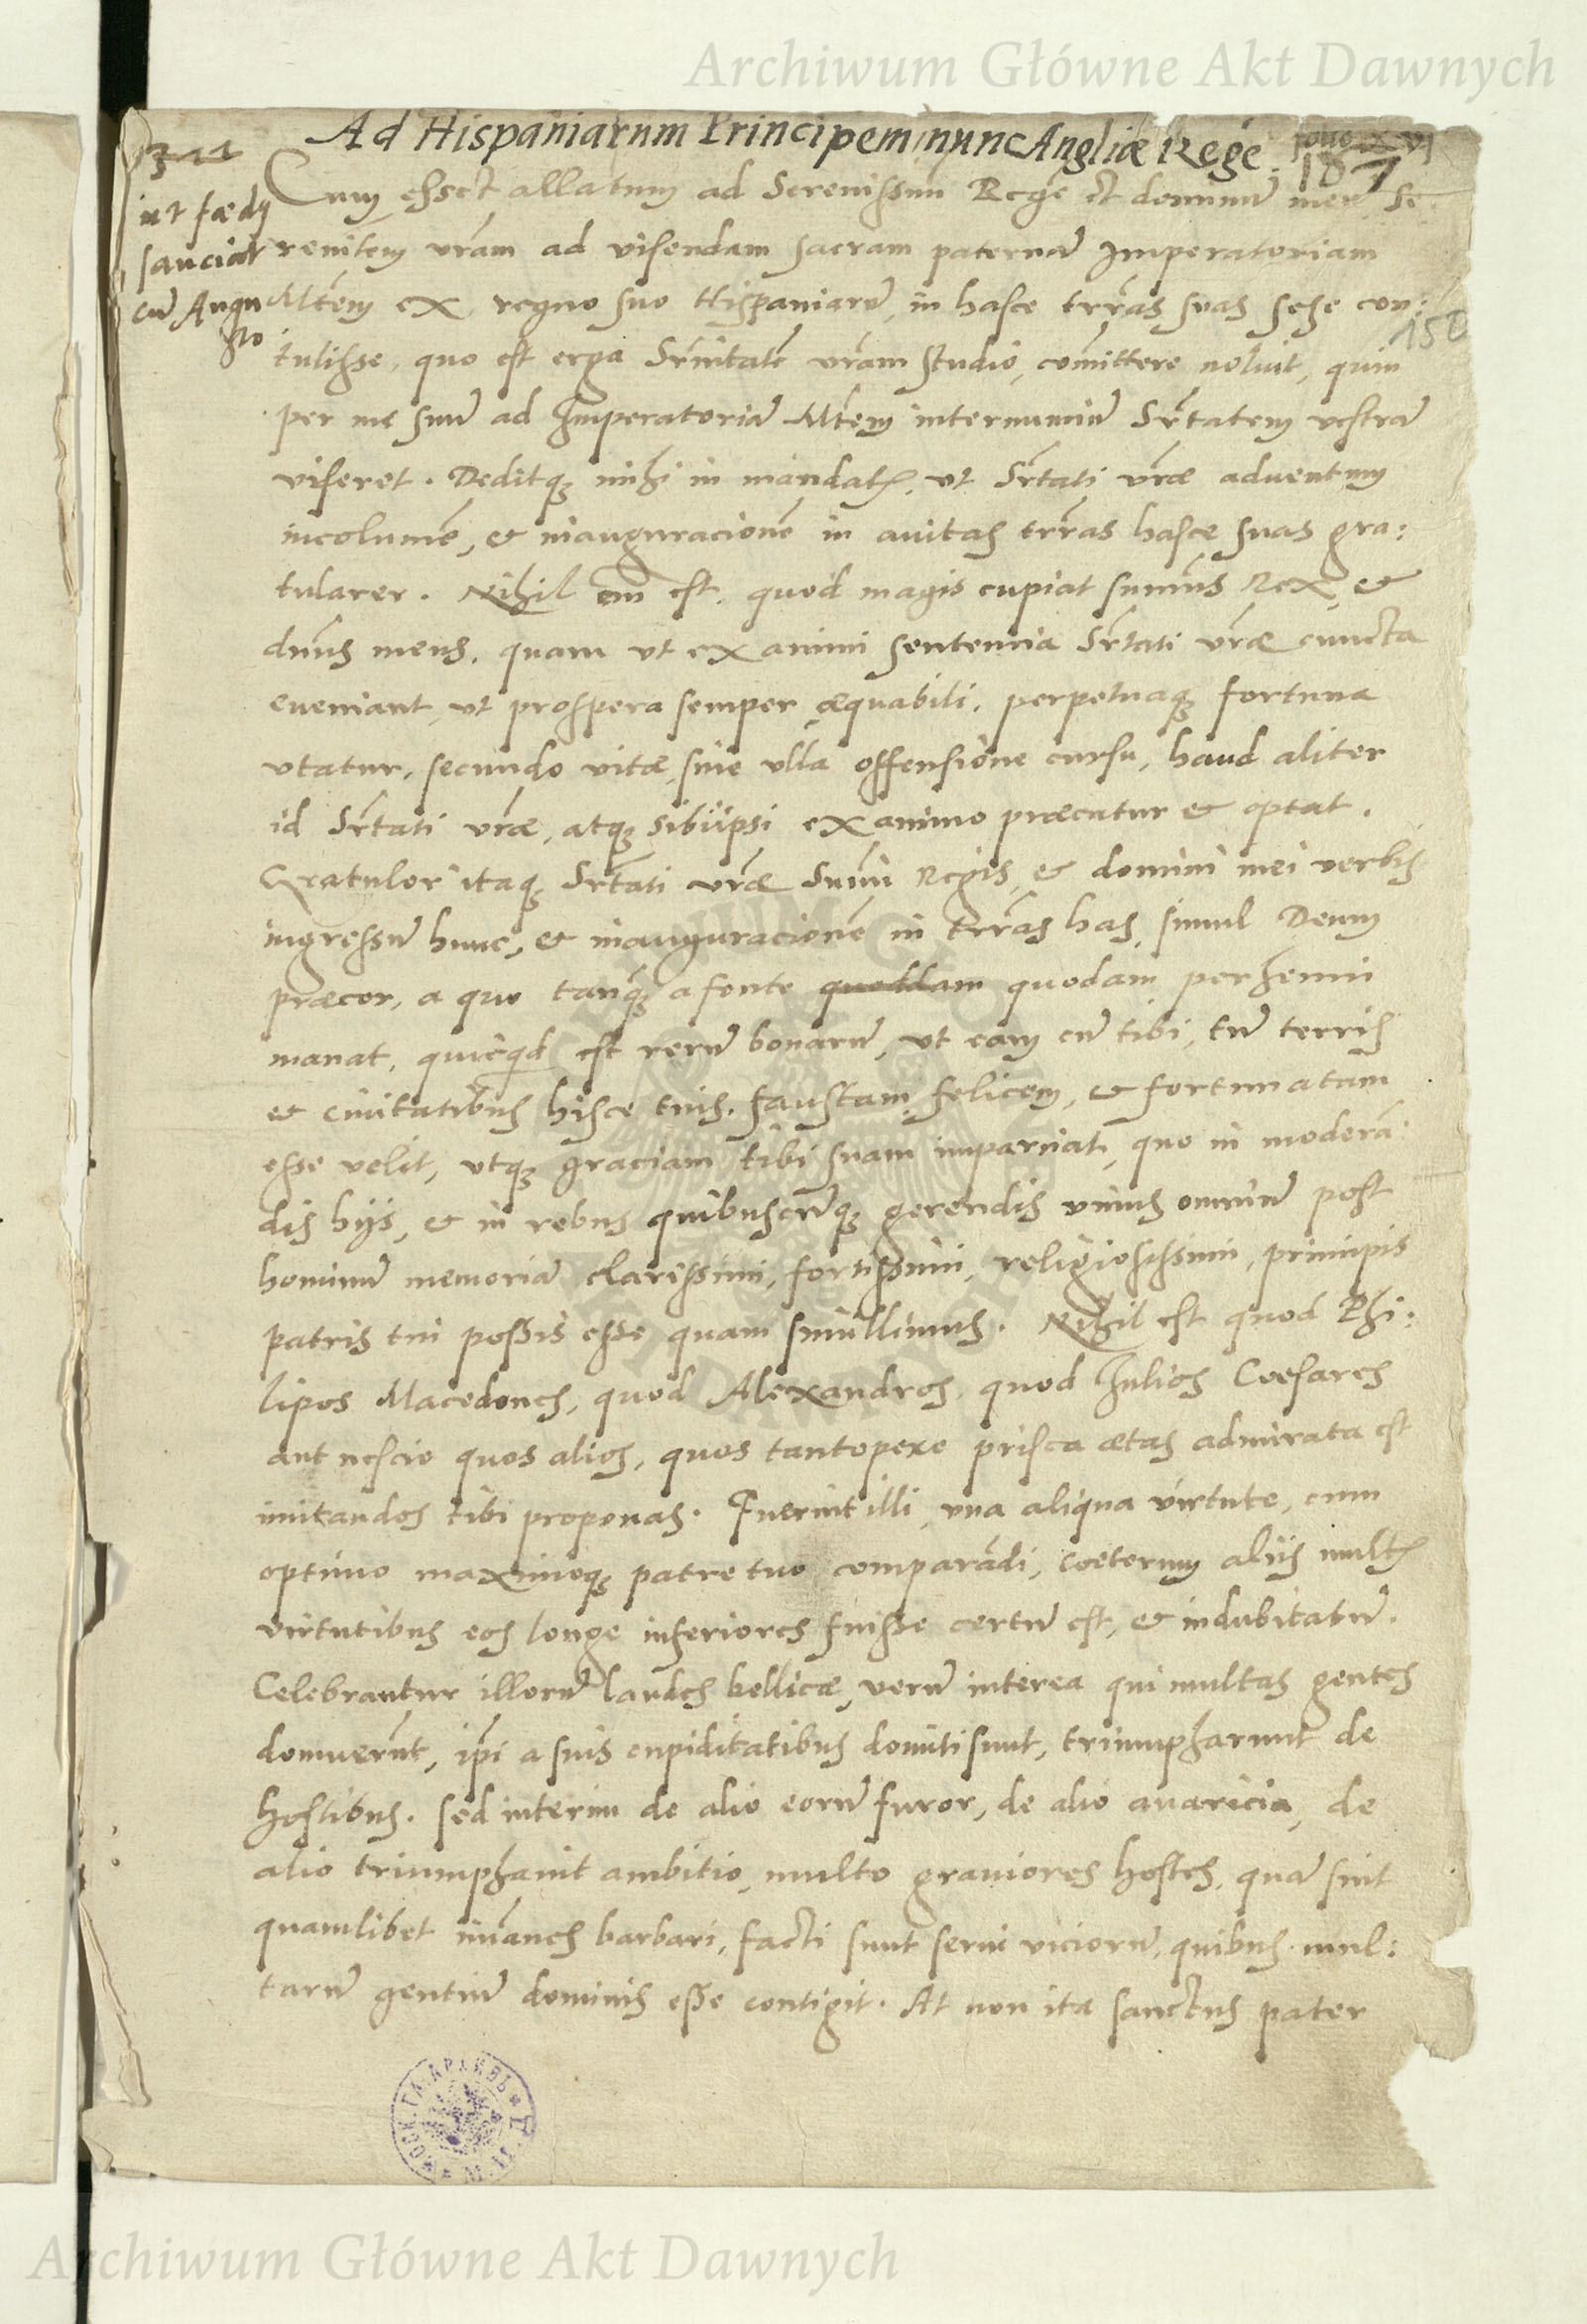 Archiwum Główne Akt Dawnych
Ad Hispaniarum Principem nunc Angliæ Regē.
folio
187
ut fædq
sanciat
cū Augu
sto
150
Cum esset allatum ad Serenissimū Regē et dominū meū Se-
renitem vr̄am ad visendam sacram paternā Imperatoriam
Mtem ex regno suo Hispaniarū, in hasce terras suas sese con:
tulisse, quo est erga Sr̄nitatē vr̄am studio, com̄ittere noluit, quin
per me suū ad Imperatoriā Mtem internunciū Sr̄tatem vestrā
viseret. Deditq; mihi in mandatis, ut Sr̄tati vr̄æ adventum
incolumē, & inauguracionē in avitas terras hasce suas gra:
tularer. Nihil em̄ est, quod magis cupiat sum̄us Rex, &
dn̄us meus, quam ut ex animi sentencia Sr̄tati vr̄æ cuncta
eveniant, ut prospera semper, æquabili, perpetuaq; fortuna
utatur, secundo vitæ, sine ulla offensione cursu, haud aliter
id Sr̄tati vr̄æ, atq; sibiipsi ex animo præcatur & optat.
Gratulor itaq; Sr̄tati vr̄æ Serm̄i Regis, & domini mei verbis
ingressū hunc, & inauguracionē in terras has, simul Deum
præcor, a quo tanq̄ a fonte quoddam quodam perhenni
manat, quicq̇d est rerū bonarū, ut eam cū tibi, tū terris
& civitatibus hisce tuis, faustam, felicem, & fortunatam
esse velit, utq; graciam tibi suam imparciat, quo in moderā:
dis hijs, & in rebus quibuscūq; gerendis unius omniū post
hominū memoriā clarissimi, fortissimi, religiosissimi, principis
patris tui possis esse quam simillimus. Nihil est quod Phi:
lipos Macedones, quod Alexandros, quod Julios Cœsares
aut nescio quos alios, quos tantopere prisca ætas admirata est
imitandos tibi proponas. Fuerint illi, una aliqua virtute, cum
optimo maximoq; patre tuo comparādi, cœterum aliis multis
virtutibus eos longe inferiores fuisse certū est, & indubitatū.
Celebrantur illorū laudes bellicæ, verū interea qui multas gentes
domuerūt, ip̄i a suis cupiditatibus domiti sunt, triumpharunt de
hostibus. sed interim de alio eorū furor, de alio avaricia, de
alio triumphavit ambitio, multo graviores hostes, quā sint
quamlibet im̄anes barbari, facti sunt servi viciorū, quibus mul:
tarū gentiū dominis esse contigit. At non ita sanctus pater
Archiwum Główne Akt Dawnych